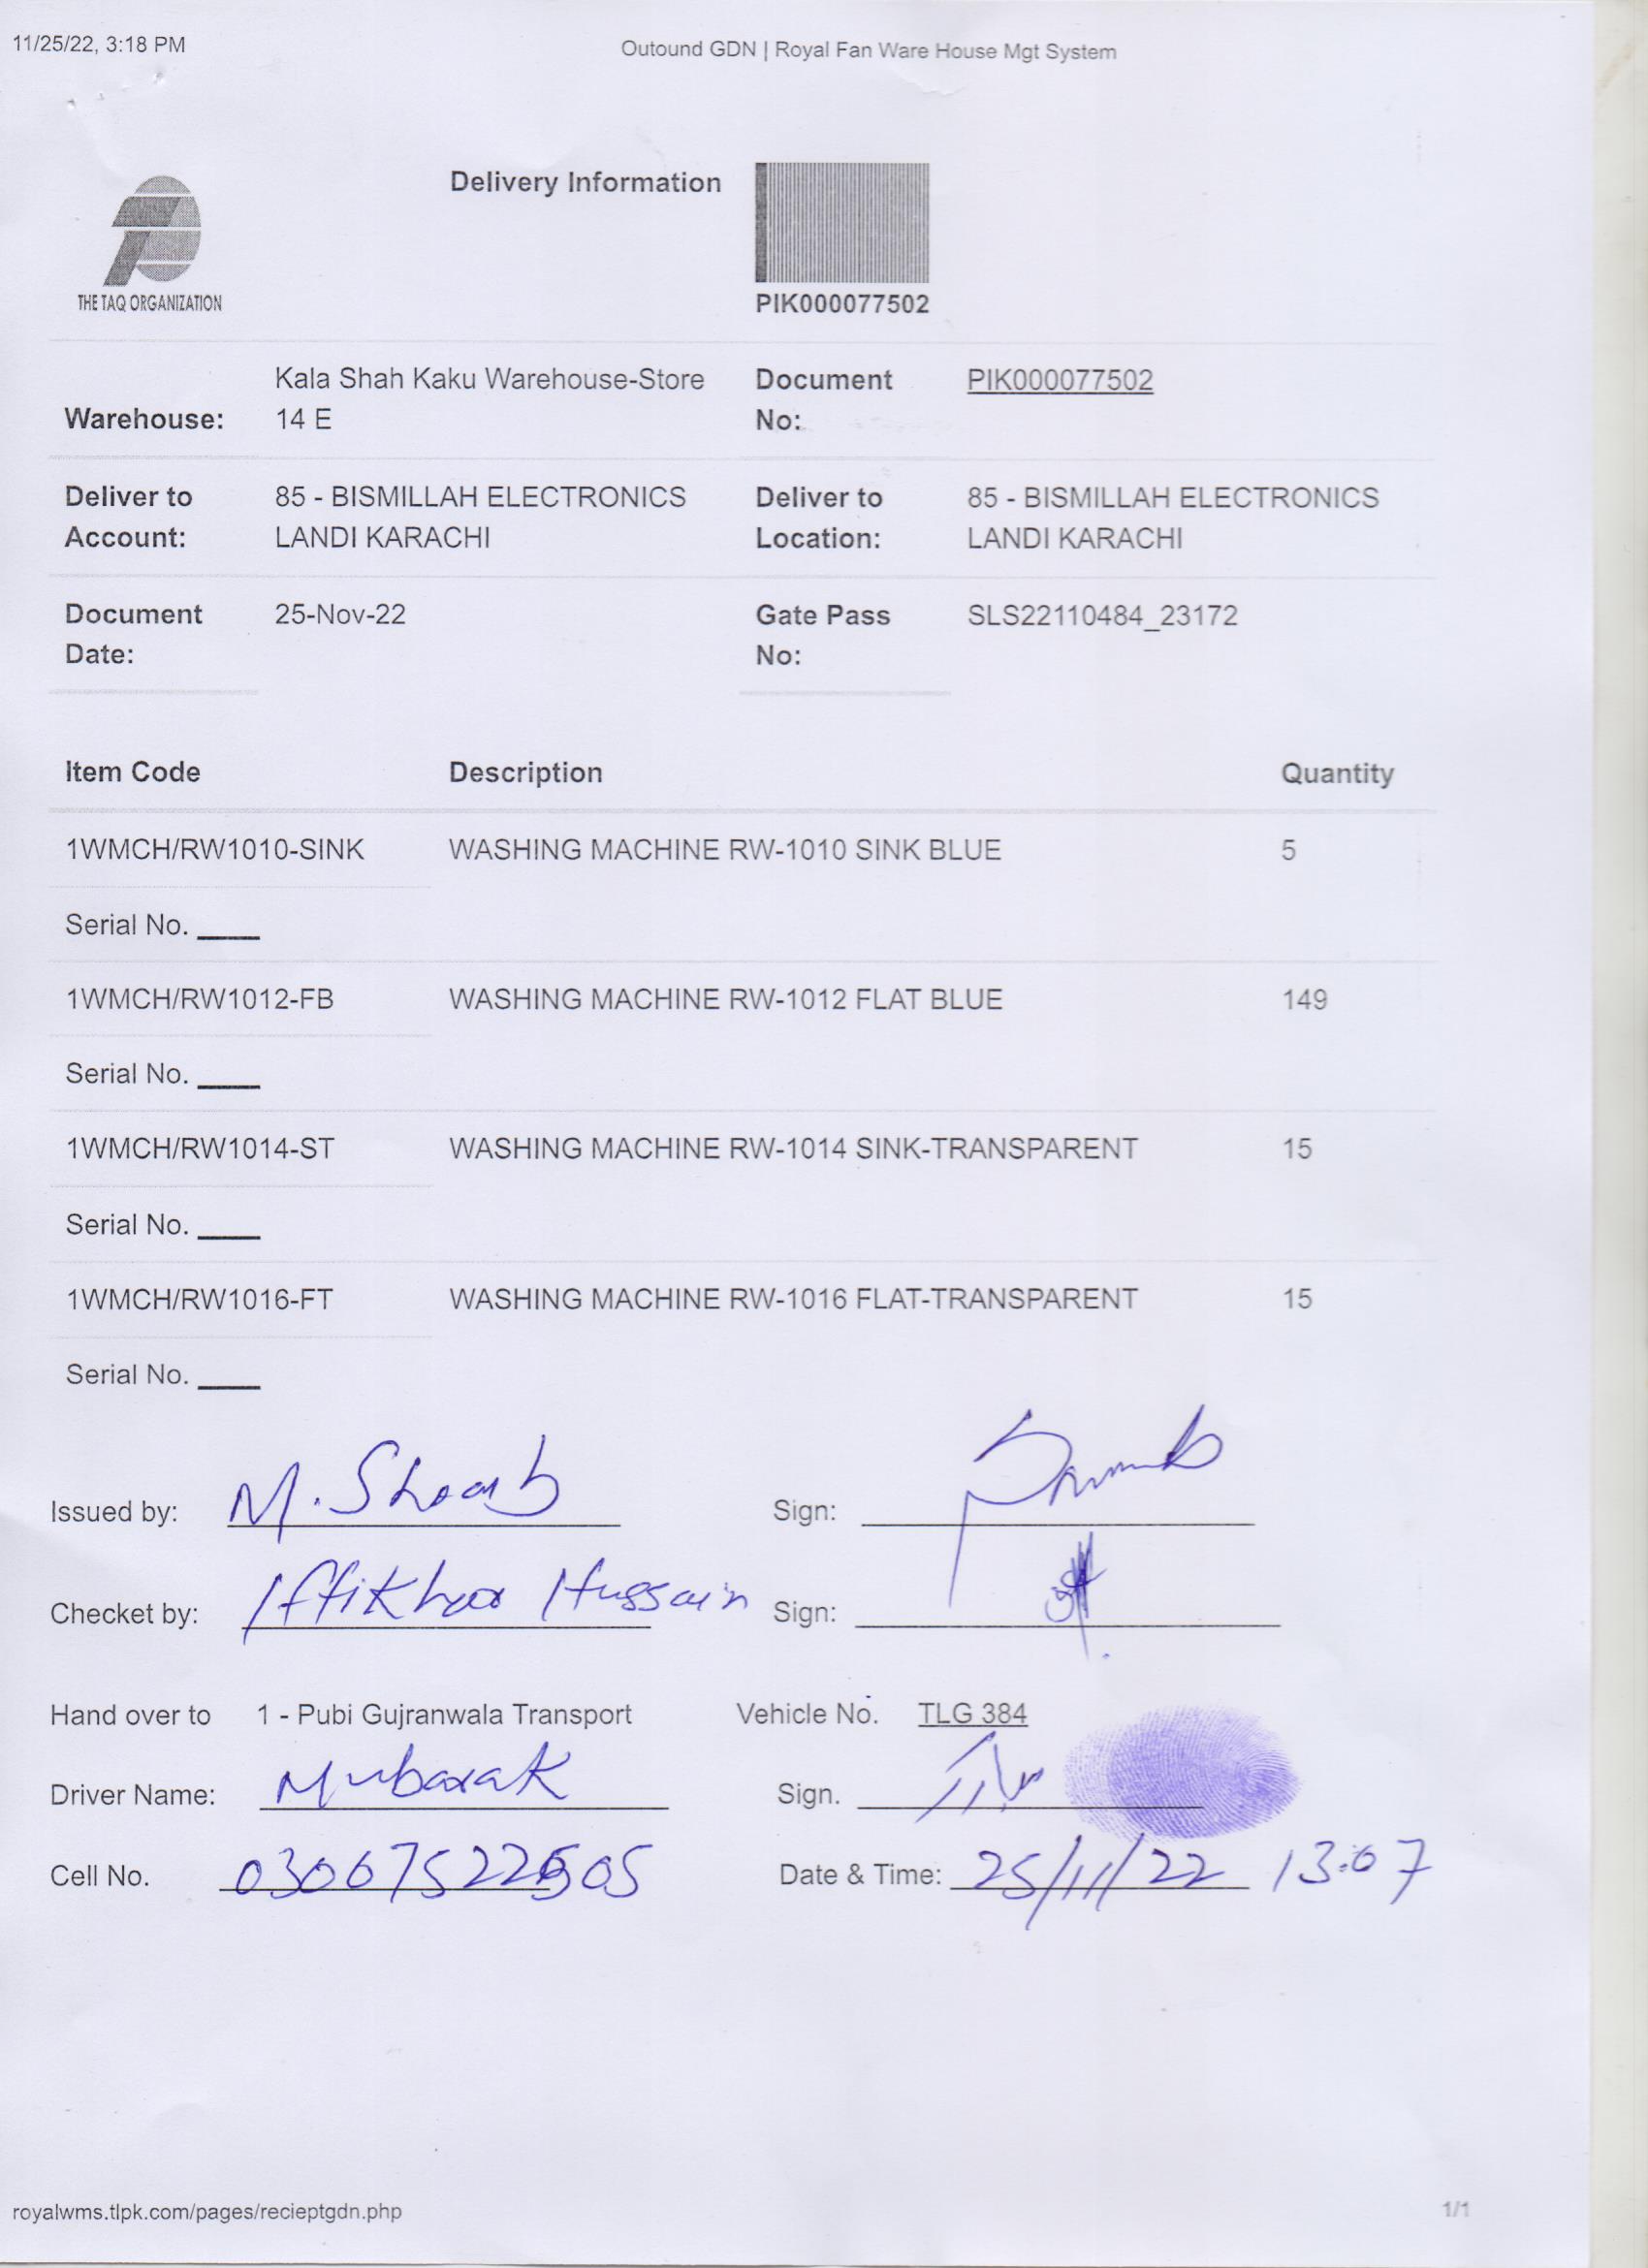 11/25/22, 3:18 PM
Outound GDN | Royal Fan Ware House Mgt System
THE TAQ ORGANIZATION
Delivery Information
PIK000077502
Warehouse: Kala Shah Kaku Warehouse-Store 14 E
Document No: PIK000077502
Deliver to Account: 85 - BISMILLAH ELECTRONICS LANDI KARACHI
Deliver to Location: 85 - BISMILLAH ELECTRONICS LANDI KARACHI
Document Date: 25-Nov-22
Gate Pass No: SLS22110484_23172
Item Code Description Quantity
1WMCH/RW1010-SINK WASHING MACHINE RW-1010 SINK BLUE 5
Serial No. ____
1WMCH/RW1012-FB WASHING MACHINE RW-1012 FLAT BLUE 149
Serial No. ____
1WMCH/RW1014-ST WASHING MACHINE RW-1014 SINK-TRANSPARENT 15
Serial No. ____
1WMCH/RW1016-FT WASHING MACHINE RW-1016 FLAT-TRANSPARENT 15
Serial No. ____
Issued by: M. Shoaib Sign:
Checket by: Iftikhar Hussain Sign:
Hand over to 1 - Pubi Gujranwala Transport Vehicle No. TLG 384
Driver Name: Mubarak Sign.
Cell No. Date & Time: 25/11/22 13:07
royalwms.tlpk.com/pages/recieptgdn.php
1/1